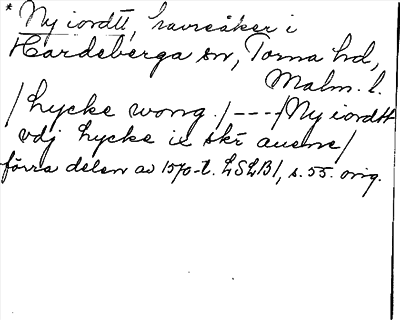 * Ny iordtt, havreåker i
Hardeberga sn, Torna hd,
Malm. l.
/Lycke wong./---/Ny iordtt
vdj Lycke ie skr auene/
förra delen av 1570-t. LSLB1, s. 55. orig.